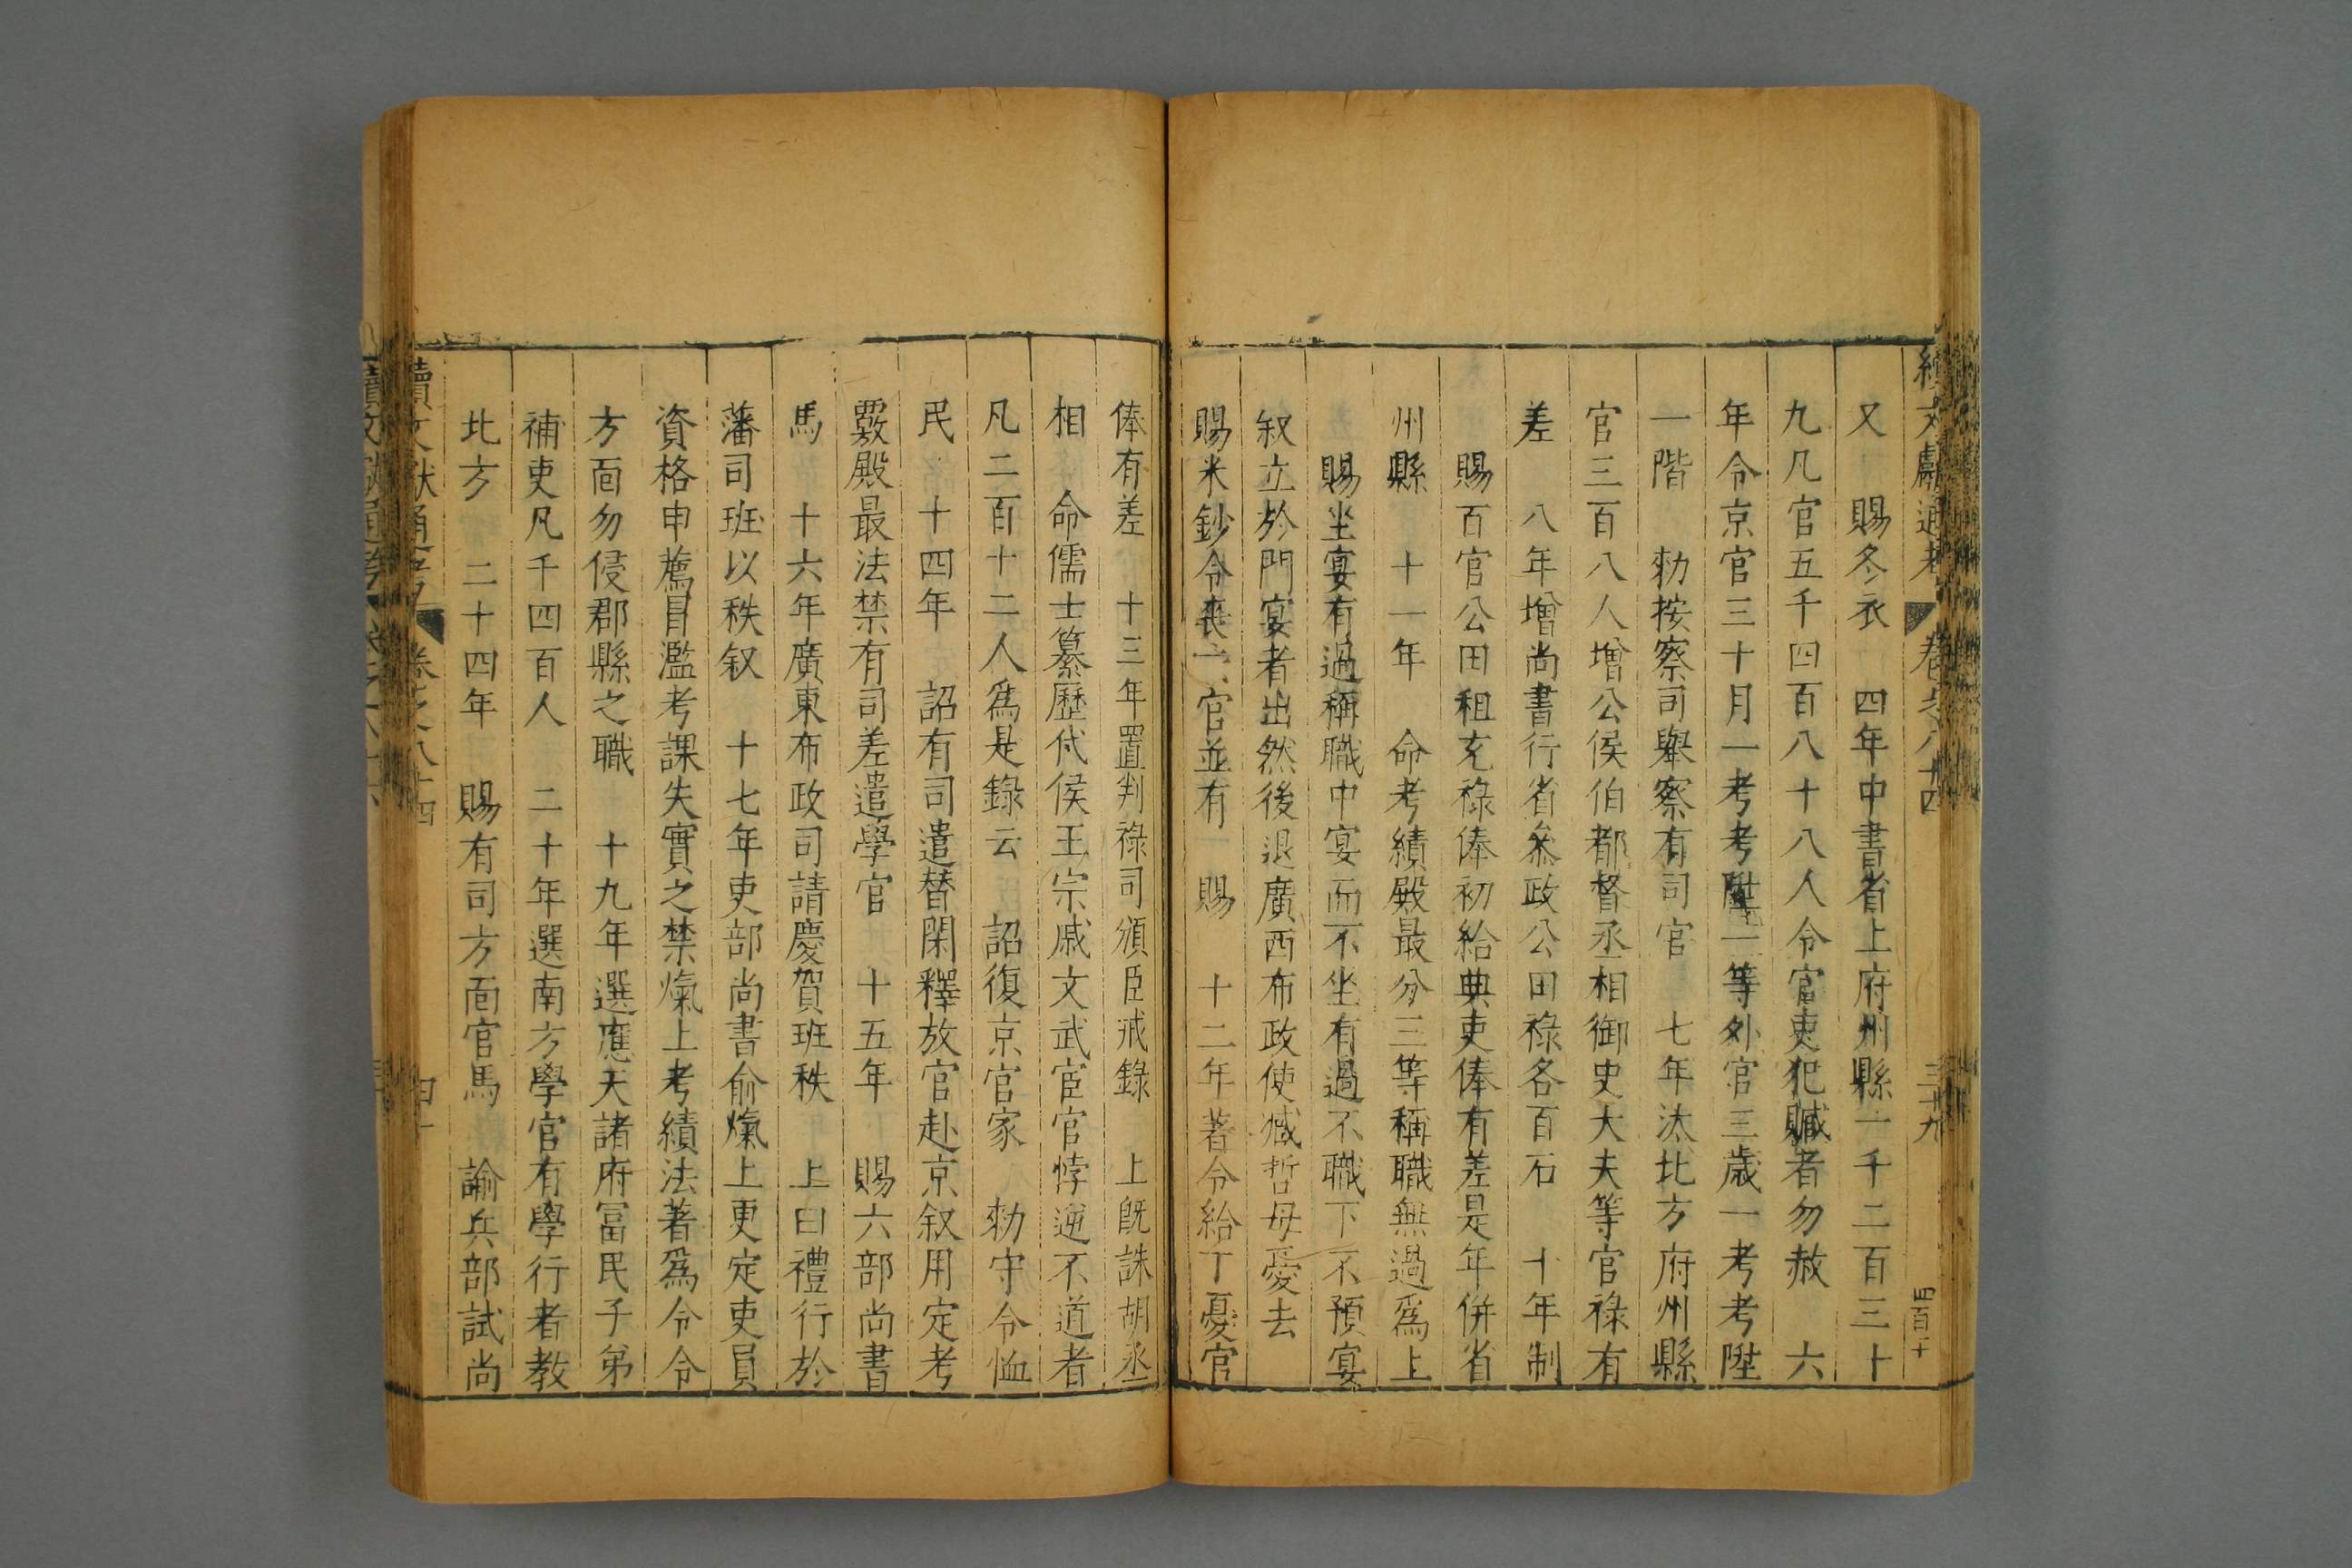 續文獻通考 卷之八十四 三十九
又 賜冬衣 四年中書省上府州縣一千二百三十
九凡官五千四百八十八人令官吏犯贓者勿赦 六
年令京官三十月一考考陞一等外官三歲一考考陞
一階 勑按察司舉察有司官 七年汰北方府州縣
官三百八人增公侯伯都督丞相御史大夫等官祿有
差 八年增尚書行省叅政公田祿各百石 十年制
賜百官公田租充祿俸初給典吏俸有差是年併省
州縣 十一年 命考績殿最分三等稱職無過爲上
賜坐宴有過稱職中宴而不坐有過不職下不預宴
叙立於門宴者出然後退廣西布政使臧哲母憂去
賜米鈔令喪 官並有 賜 十二年著令給丁憂官
俸有差 十三年置判祿司頒臣戒錄 上旣誅胡丞
相 命儒士纂歷代侯王宗戚文武宦官悖逆不道者
凡二百十二人爲是錄云 詔復京官家 勑守令恤
民 十四年 詔有司遣替閑釋放官赴京叙用定考
覈殿最法禁有司差遣學官 十五年 賜六部尚書
馬 十六年廣東布政司請慶賀班秩 上曰禮行於
藩司班以秩叙 十七年吏部尚書俞熂上更定吏員
資格申薦冐濫考課失實之禁熂上考績法著爲令令
方面勿侵郡縣之職 十九年選應天諸府冨民子弟
補吏凡千四百人 二十年選南方學官有學行者教
北方 二十四年 賜有司方面官馬 諭兵部試尚
續文獻通考 卷之八十四 四十